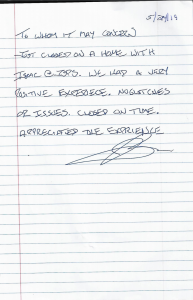 5/20/19
To WHOM IT MAY CONCERN
JUST CLOSED ON A HOME WITH
ISAAC. WE HAD A VERY
POSITIVE EXPERIECE. NO GLITCHES
OR ISSUES. CLOSED ON TIME.
APPRECIATED THE EXPERIENCE